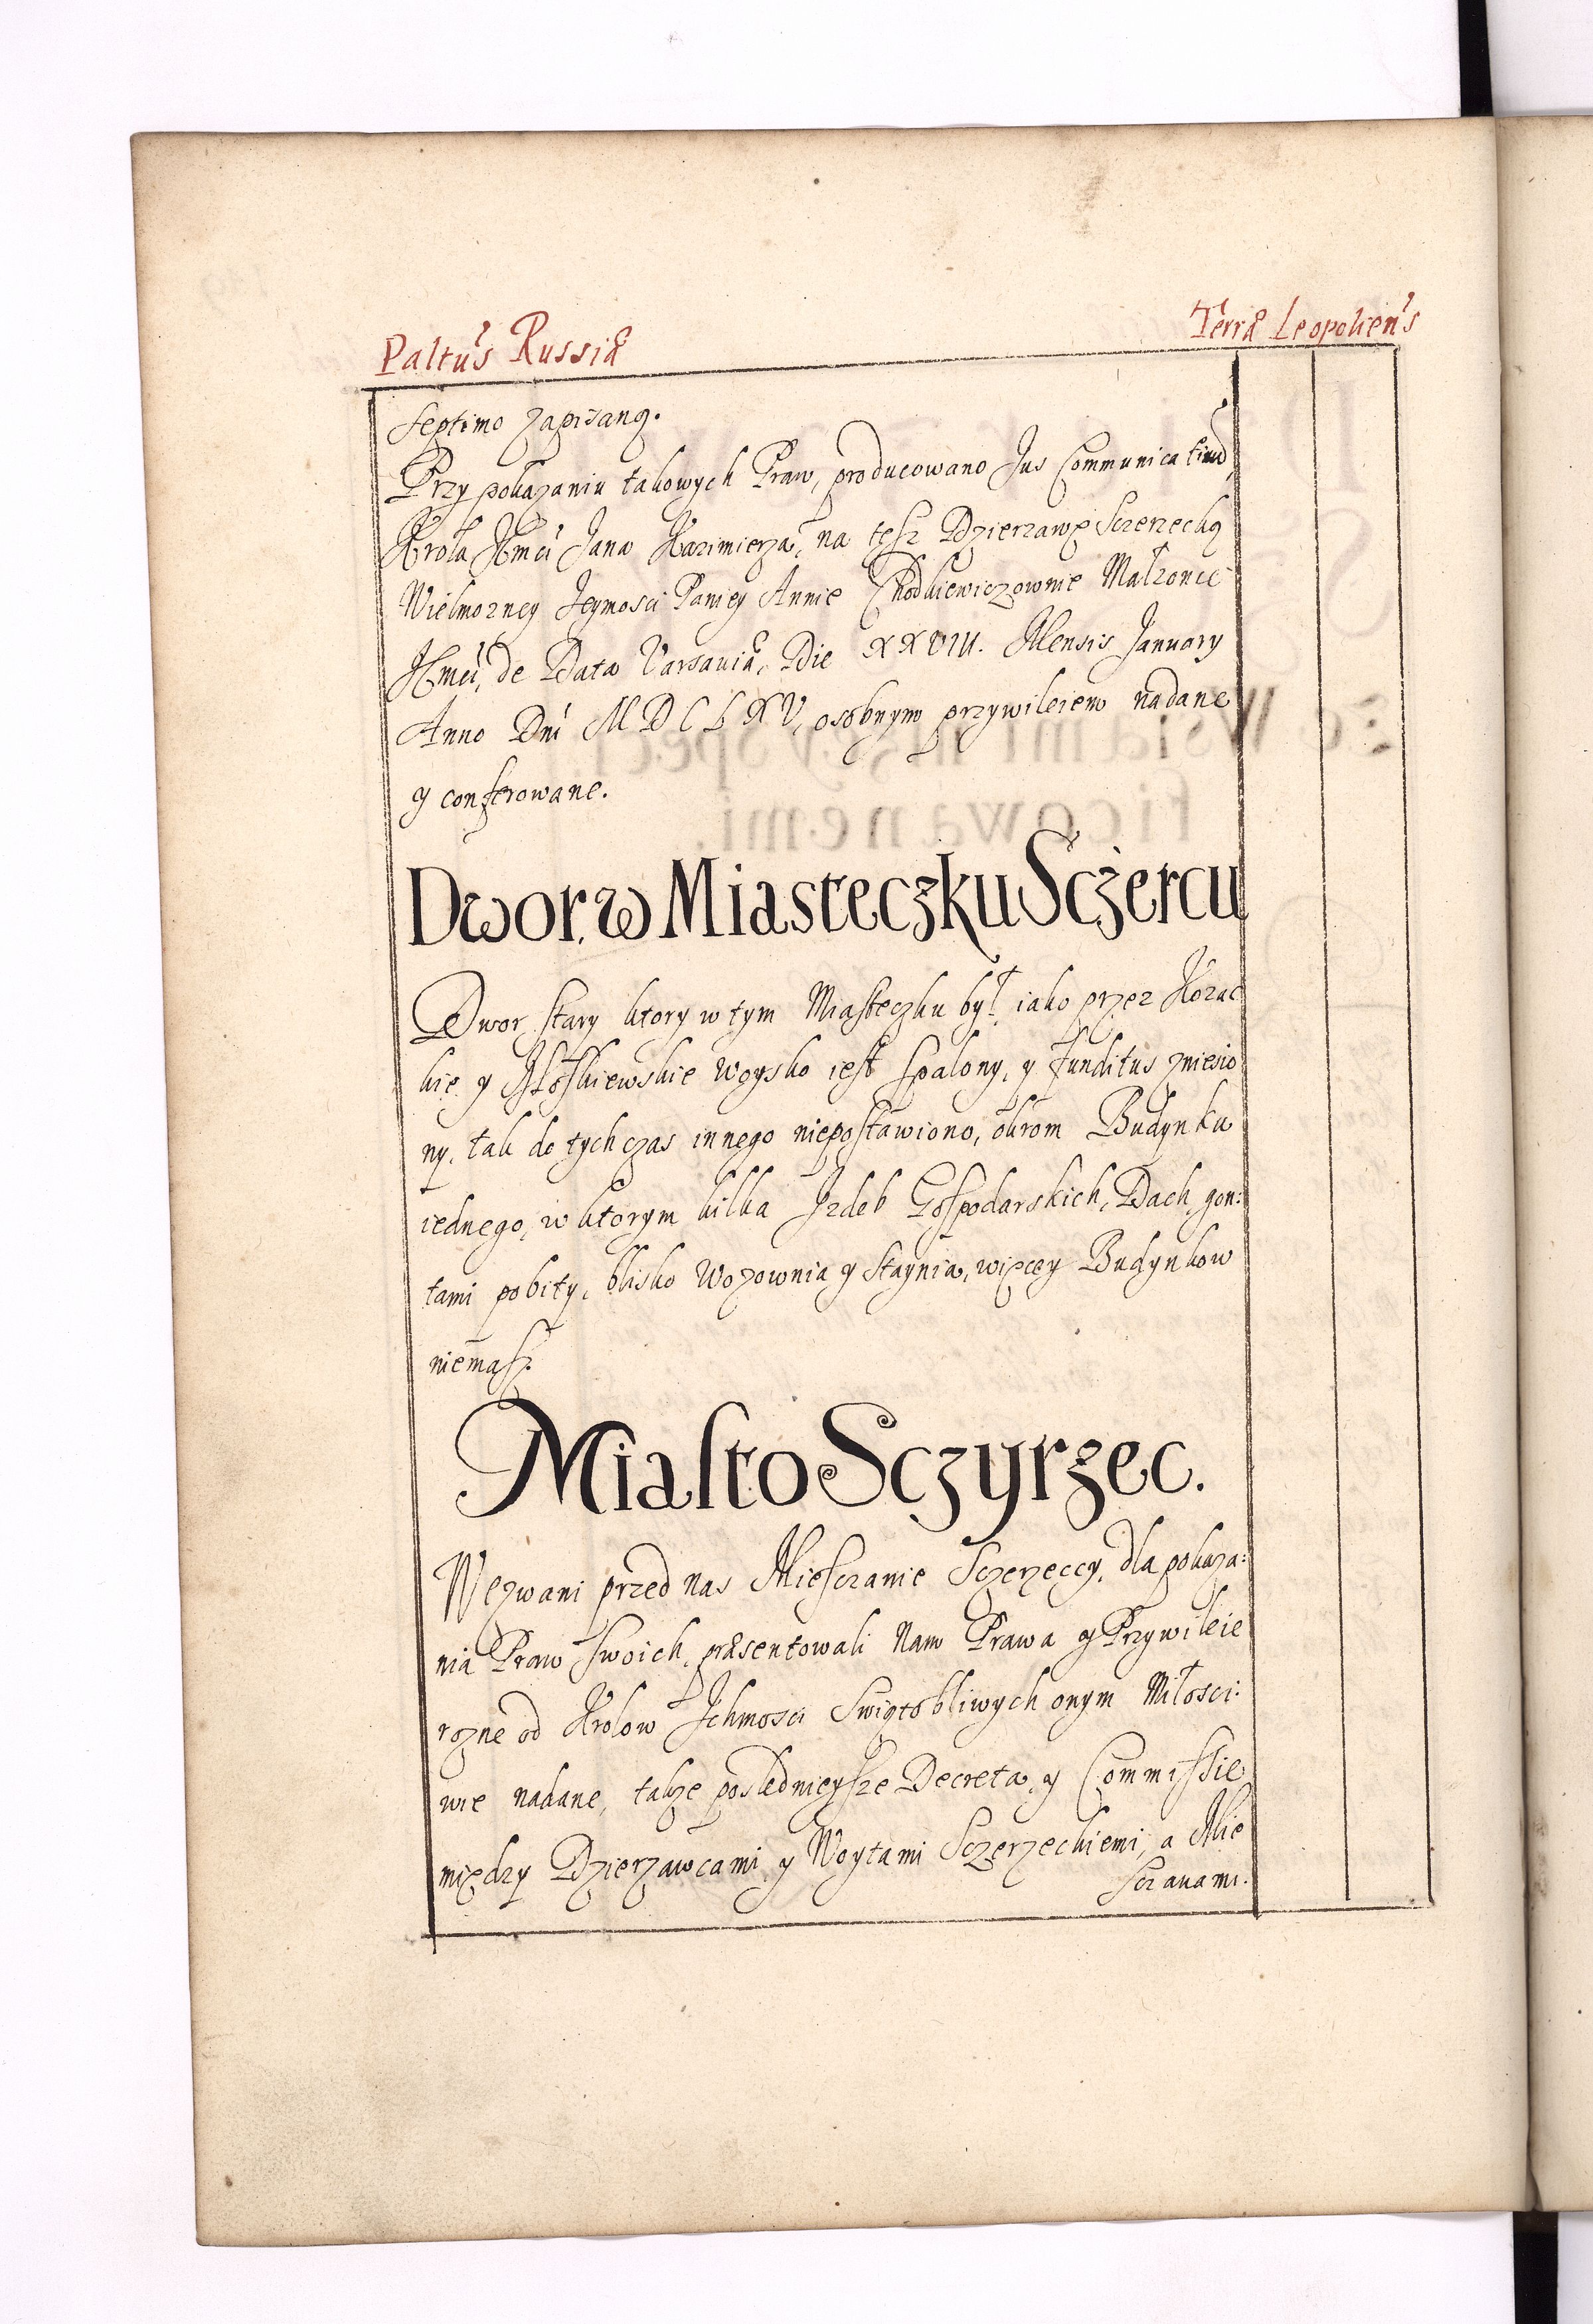 Paltus Russiæ
Terræ Leopoliens
Septimo zapisaną.
Przy pokazaniu takowych Praw, producowano Jus Communicativũ,
Krola JKmci Jana Kazimierza, na tęsz Dzierzawę Sczerzecką
Wielmozney Jeymosci Paniey Annie Chodkiewiczownie Małzonce
JKmci, de Data Varsaviæ, Die XXVIII. Mensis January
Anno Dni MDCLXV, osobnym przywileiem nadane
y conferowane.
Dwor, w Miasteczku Sczercu
Dwor stary ktory w tym Miasteczku był, iako przez Kozac
kie y Moskiewskie woysko iest spalony, y funditus zniesio
ny, tak do tych czas innego niepostawiono, okrom Budynku
iednego, w ktorym kilka Izdeb Gospodarskich, Dach gon:
tami pobity, blisko Wozownia y staynia, więcey Budynkow
niemasz.
Miasto Sczyrzec.
Wezwani przed nas Miesczanie Sczerzeccy, dla pokaza:
nia Praw swoich, præsentowali nam Prawa y Przywileie
rozne od Krolow Ichmosci Swiętobliwych onym Miłosci:
wie nadane, takze posledniejsze Decreta, y Commissie
między Dzierzawcami y Woytami Sczerzeckiemi, a Mie
sczanami.